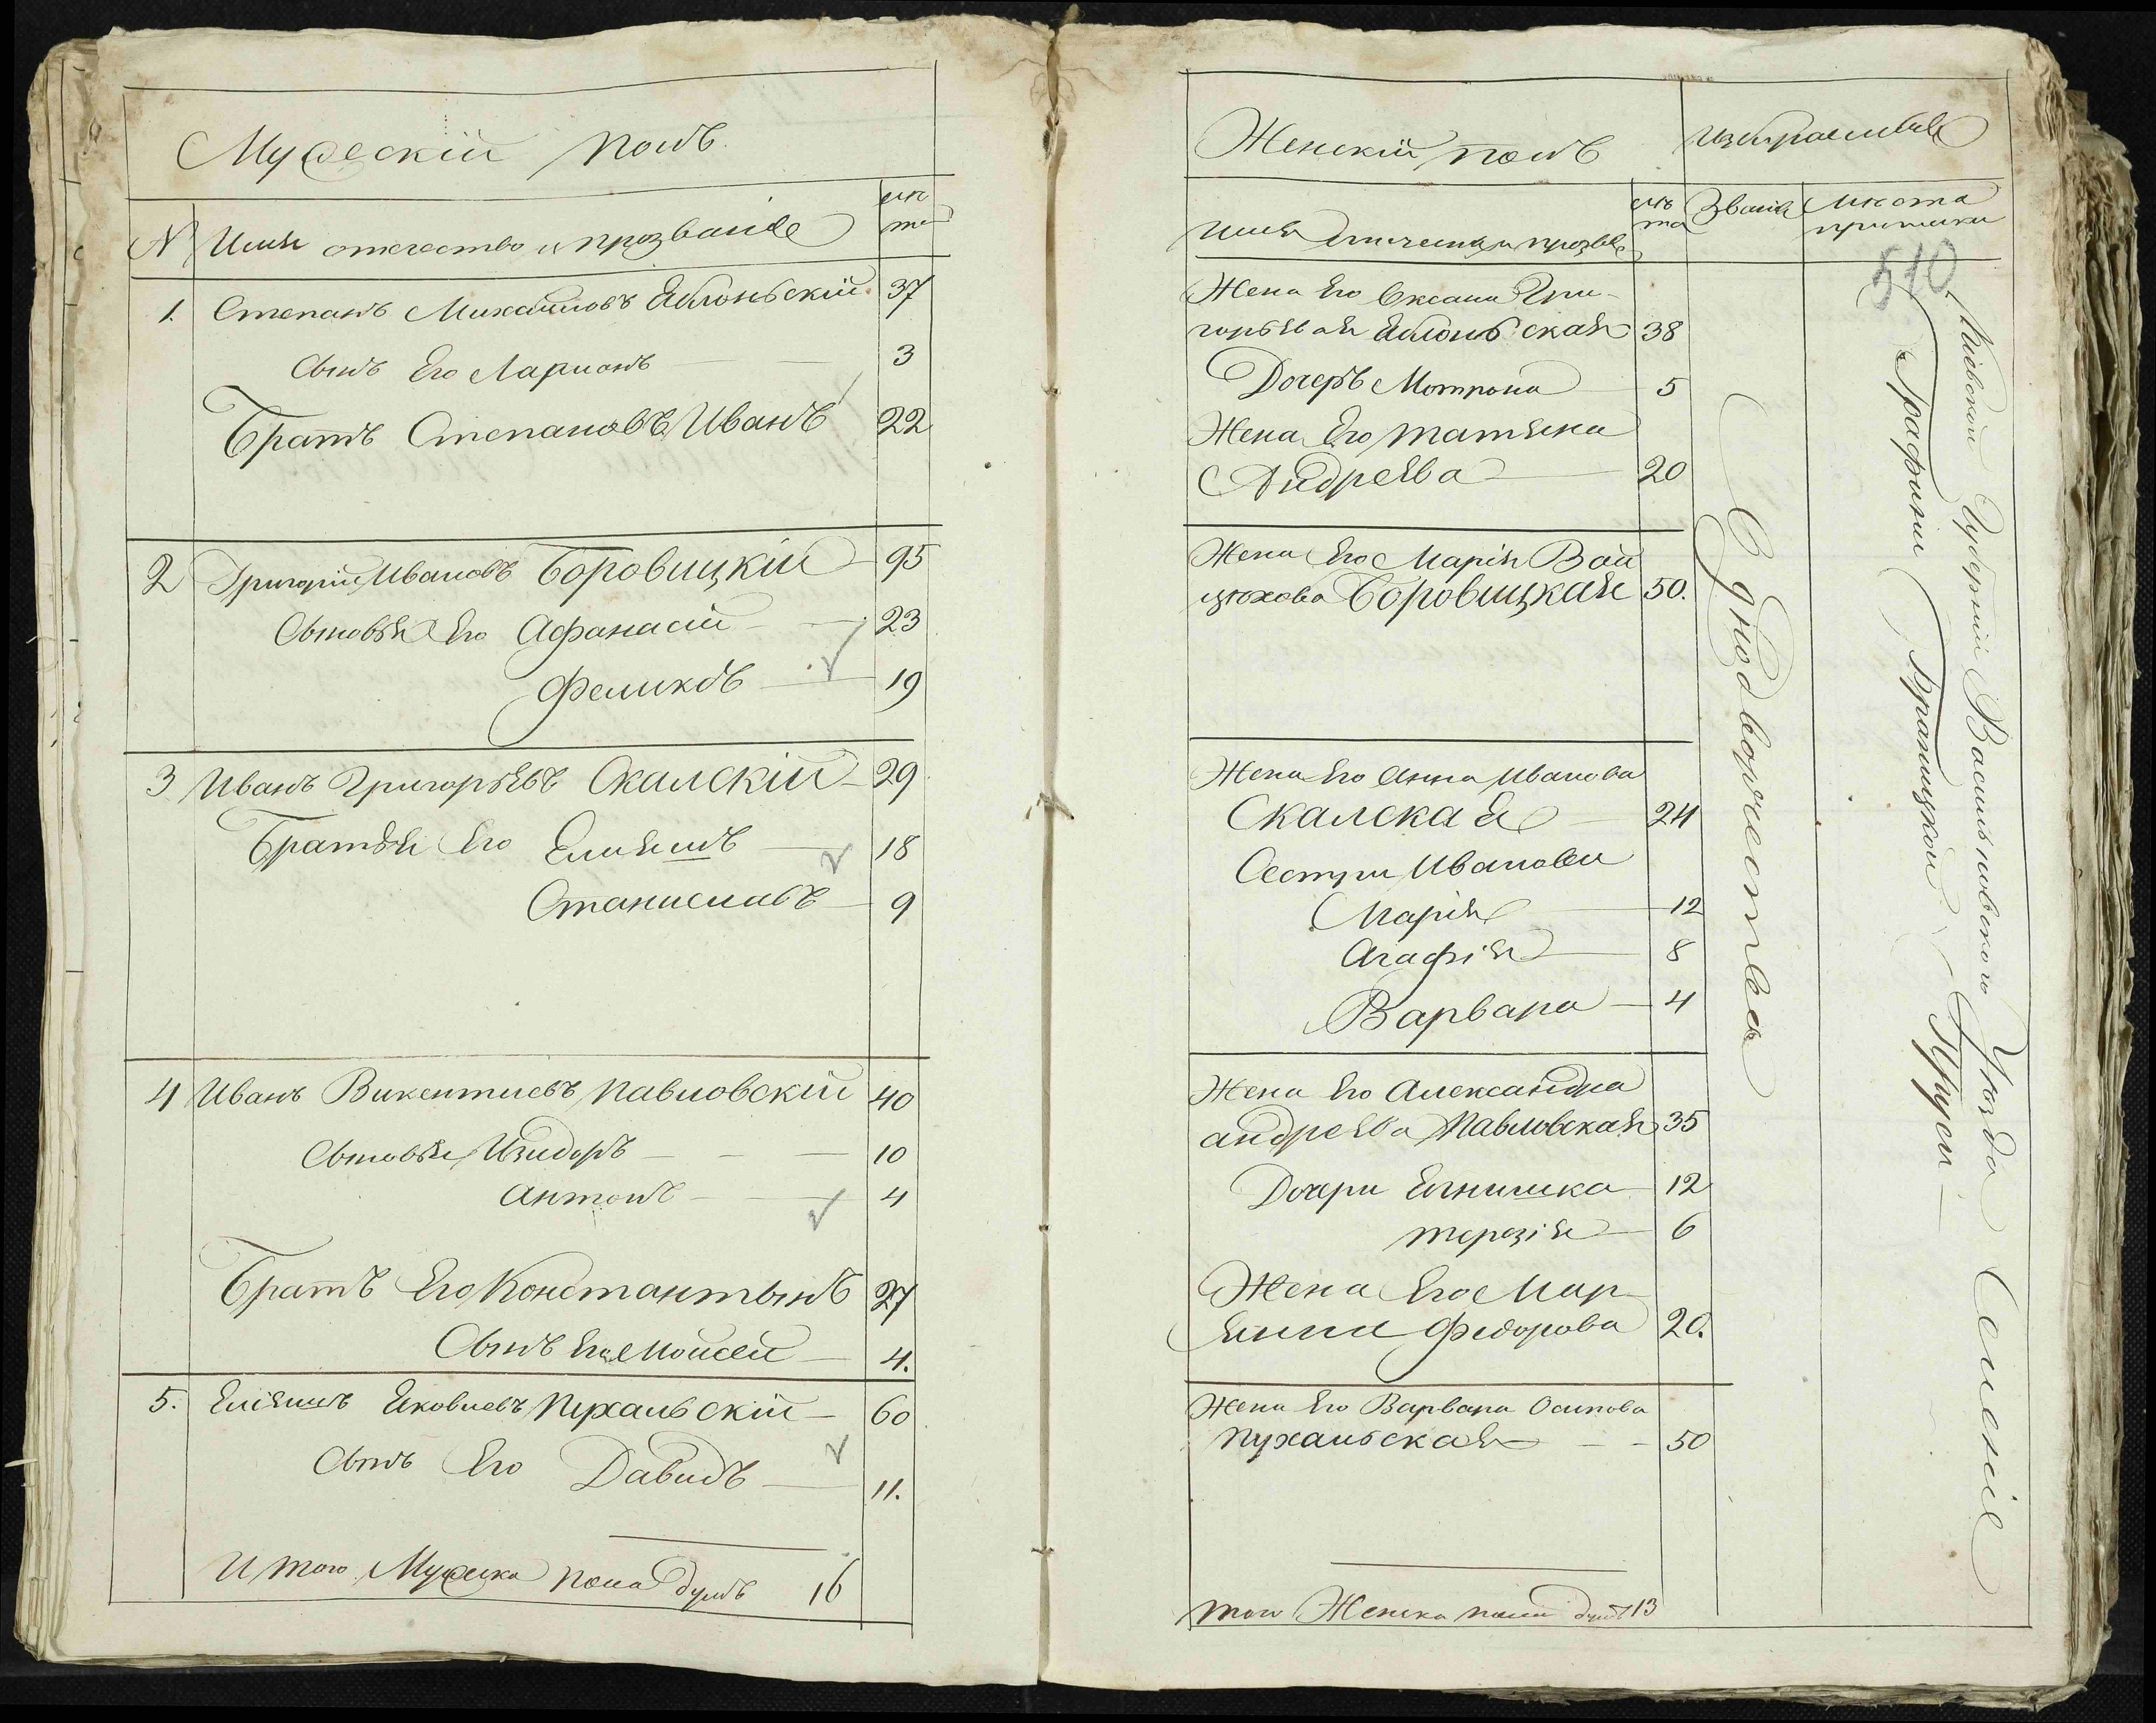 Мужескій полъ
№ Имя отечество и прозваніе лѣ
та
1. Степанъ Михайловъ Яблоньскій 37
Сынъ Его Ларионъ 3
Братъ Степановъ Иванъ 22
2 Григорій Ивановъ Боровицкій 95
Сыновья Его Афанасій 23
Феликсъ 19
3 Иванъ Григорьевъ Скалскій 29
Братья Его Елияшъ 18
Станиславъ 9
4 Иванъ Викентиевъ Павловскій 40
Сыновья Изидоръ 10
Антонъ 4
Братъ Его Константынъ 27
Сынъ Его Моисей 4.
5. Еліяшъ Яковлевъ Пухальскій 60
Сынъ Его Давидъ 11.
Итого Мужеска пола душъ 16
Женскій полъ
Имя отечество и прозва лѣ
та Званія Мѣста
510
Жена Его Оксана Гри-
горьева Яблоньская 38
Дочеръ Мотрона 5
Жена Его Татьяна
Андреева 20
Жена Его Марія Вой
цѣхова Боровицкая 50.
Жена Его Анна Иванова
Скалская 24
Сестри Иванови
Марія 12
Агафія 8
Варвара 4
Жена Его Александра
Андреева Павловская 35
Дочери 12
Терезія 6
Жена Его Мар
Федорова 20.
Жена Его Варвара Осипова
Пухальская 50
того Женска пола душъ 13
Однодворчества
Кіевской Губерніи Васильковского Уѣзда Селеніе
Графини Браницкой